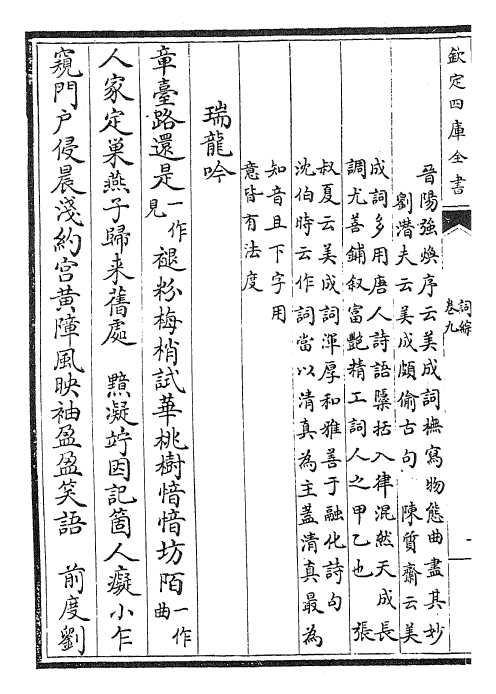 欽定四庫全書
詞綜
卷九
一
晉陽強煥序云美成詞撫寫物態曲盡其妙
劉潛夫云美成頗偷古句　陳質齋云美
成詞多用唐人詩語櫽括入律混然天成長
調尤善鋪叙富艷精工詞人之甲乙也　張
叔夏云美成詞渾厚和雅善于融化詩句
沈伯時云作詞當以清真為主葢清真最為
知音且下字用
意皆有法度
瑞龍吟
章臺路還是一作見褪粉梅梢試華桃樹愔愔坊陌一作曲
人家定巢燕子歸来舊處　黯凝竚因記箇人癡小乍
窺門户侵晨淺約宫黄障風映袖盈盈笑語　前度劉